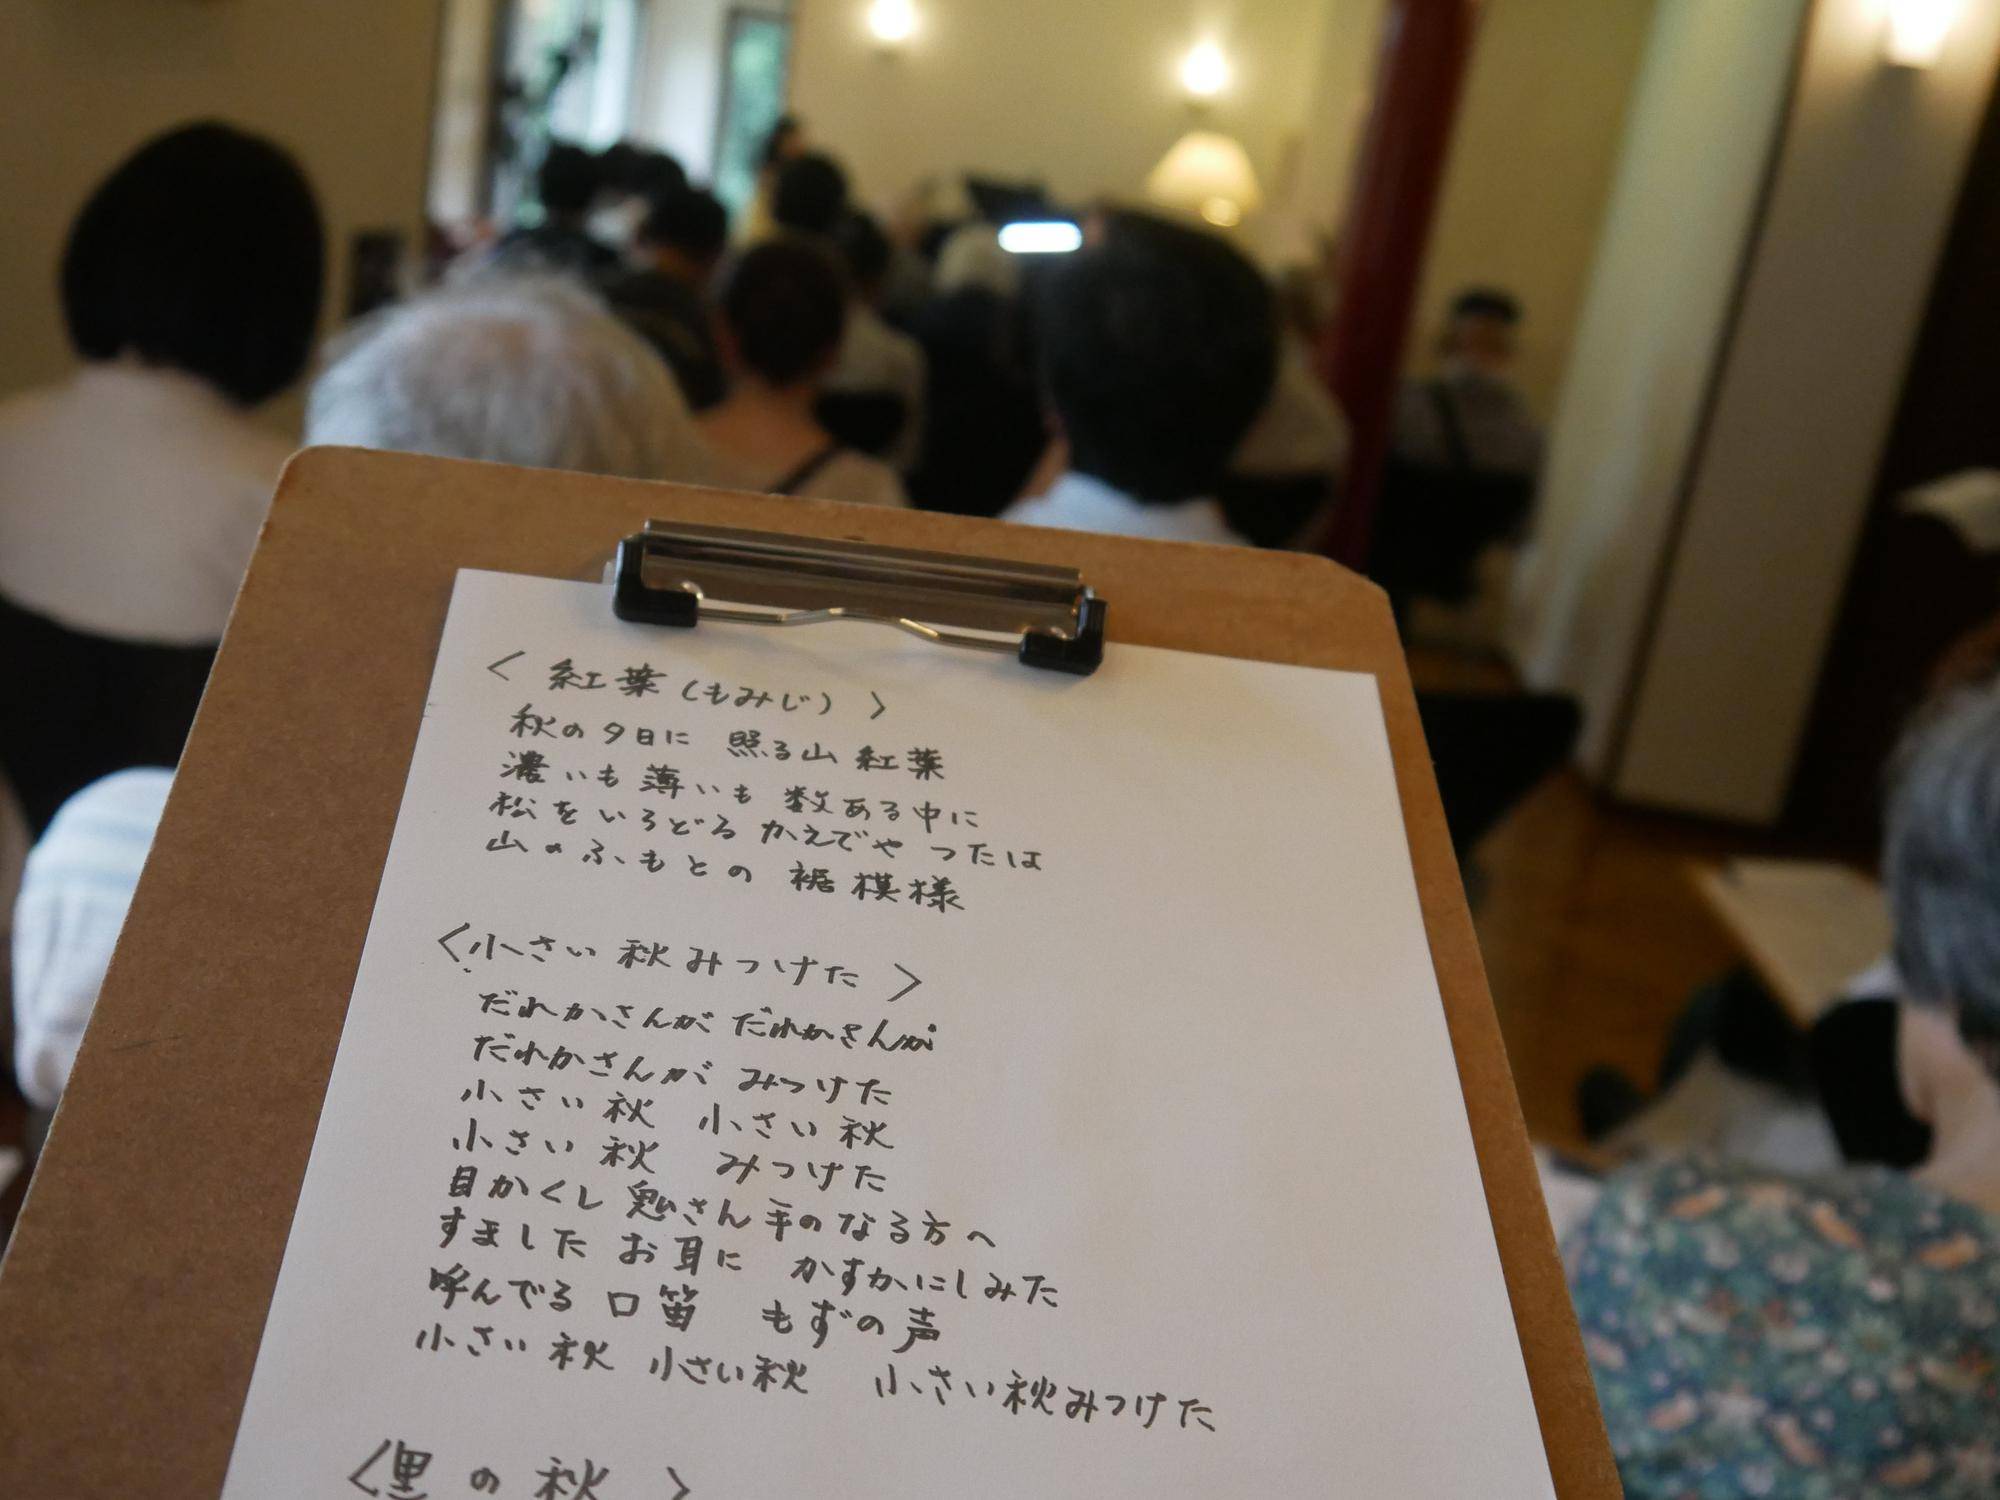 ＜紅葉(もみじ)＞
秋の夕日に 照る山 紅葉
濃いも 薄いも 数ある中に
松を いろどる かえでや つたは
山のふもとの 裾模様
＜小さい 秋みつけた＞
だれかさんが だれかさんが
だれかさんが みつけた
小さい 秋 小さい 秋
小さい 秋 みつけた
目かくし 鬼さん 手の なる方へ
すました お耳に かすかにしみた
呼んでる 口笛 もずの声
小さい 秋 小さい秋 小さい秋みつけた
＜里の秋＞